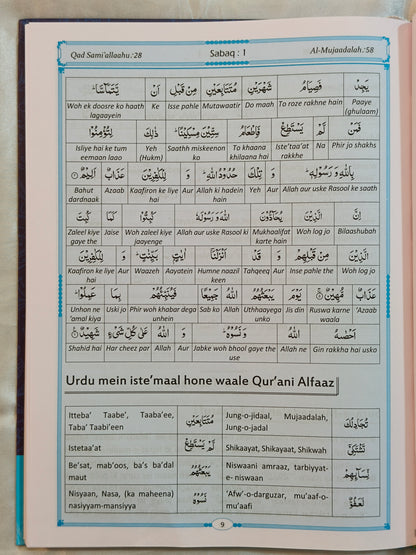 Qad Sami'allaahu:28 Sabaq : 1 Al-Mujaadalah:58
يَجِدْ فَصِيَامُ شَهْرَيْنِ مُتَتَابِعَيْنِ مِنْ قَبْلِ اَنْ يَّتَمَآسَّا ۚ
Woh ek doosre ko haath lagaayein Ke Isse pahle Mutawaatir Do maah To roze rakhne hain Paaye (ghulaam)
فَمَنْ لَّمْ يَسْتَطِعْ فَاِطْعَامُ سِتِّيْنَ مِسْكِيْنًا ؕ ذٰلِكَ لِتُؤْمِنُوْا
Isliye hai ke tum eemaan laao Yeh (Hukm) Saathh miskeenon ko To khaana khilaana hai Iste'taa'at rakkhe Na Phir jo shakhs
بِاللّٰهِ وَرَسُوْلِهٖ ؕ وَ تِلْكَ حُدُوْدُ اللّٰهِ ؕ وَ لِلْكٰفِرِيْنَ عَذَابٌ اَلِيْمٌ
Bahut dardnaak Azaab Kaafiron ke liye hai Aur Allah ki hadein hain Yeh Aur Allah aur uske Rasool ke saath
اِنَّ الَّذِيْنَ يُحَآدُّوْنَ اللّٰهَ وَ رَسُوْلَهٗ كُبِتُوْا كَمَا كُبِتَ
Zaleel kiye gaye the Jaise Woh zaleel kiye jaayenge Allah aur uske Rasool ki Mukhaalifat karte hain Woh log jo Bilaashubah
الَّذِيْنَ مِنْ قَبْلِهِمْ وَ قَدْ اَنْزَلْنَآ اٰيٰتٍۭ بَيِّنٰتٍ ؕ وَ لِلْكٰفِرِيْنَ
Kaafiron ke liye hai Aur Waazeh Aayatein Humne naazil keen Tahqeeq Aur Inse pahle the Woh log jo
عَذَابٌ مُّهِيْنٌ يَوْمَ يَبْعَثُهُمُ اللّٰهُ جَمِيْعًا فَيُنَبِّئُهُمْ بِمَا عَمِلُوْا ؕ
Unhon ne 'amal kiya Uski jo Phir woh khabar dega unhein Sab ko Allah Uthhaayega unko Jis din Ruswa karne waala 'Azaab
اَحْصٰىهُ اللّٰهُ وَ نَسُوْهُ ؕ وَ اللّٰهُ عَلٰى كُلِّ شَىْءٍ شَهِيْدٌ
Shahid hai Har cheez par Allah Aur Jabke woh bhool gaye the use Allah ne Gin rakkha hai usko
Urdu mein iste'maal hone waale Qur'ani Alfaaz
Itteba' Taabe', Taaba'ee, Taba' Taabi'een مُتَتَابِعَيْنِ Jung-o-jidaal, Mujaadalah, Jung-o-jadal تُجَادِلُكَ
Istetaa'at لَّمْ يَسْتَطِعْ Shikaayat, Kaayaat, Shikwah تَشْتَكِىْٓ
Be'sat, mab'oos, ba's ba'dal maut يَبْعَثُهُمُ Niswaani amraaz, tarbiyyat-e- niswaan نِسَآئِهِمْ
Nisyaan, Nasa, (ka maheena) nasiyyam-mansiyya نَسُوْهُ 'Afw'-o-darguzar, mu'aaf-o-mu'aafi لَعَفُوٌّ
9